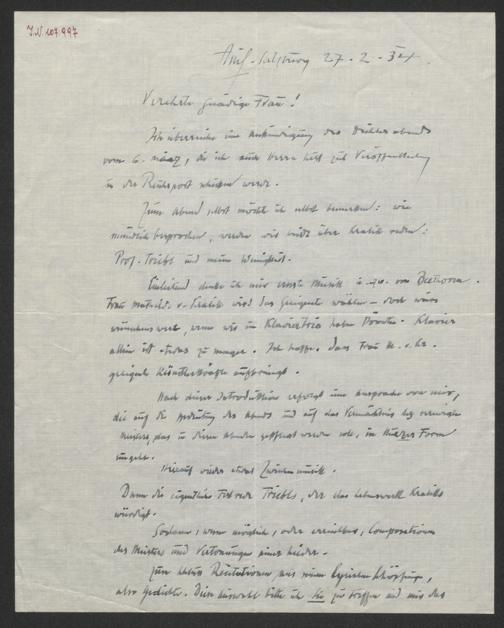 J.N. 107.997
Anif-Salzburg 27.2.34.
Verehrte gnädige Frau!
Ich überreiche eine Ankündigung des Dichterabends
vom 6. März, die ich auch Herrn zur Veröffentlichung
in der Reichspost schicken werde.
Zum Abend selbst möchte ich selbst bemerken: wie
mündlich besprochen, werden wir nicht über Kralik reden:
Prof. Triebl und meine Wenigkeit.
Einleitend denke ich mir ernste Musik u. zw. von Beethoven.
Frau v. Kralik wird das geeignete wählen – doch wäre
wünschenswert, wenn wir ein Klaviertrio haben könnten. Klavier
allein ist etwas zu mager. Ich hoffe, dass Frau M. v. Kr.
geeignete Künstlerkräfte aufbringt.
Nach dieser Introduktion erfolgt eine Ansprache von mir,
die auf die Bedeutung des Abends und auf das Vermächtnis des verewigten
Meisters, das in diesen Abenden gepflegt werden soll, in kurzer Form
eingeht.
Hierauf wieder etwas Zwischenmusik.
Dann die eigentliche Festrede Triebls, der das Lebenswerk Kraliks
würdigt.
Sodann, wenn möglich, oder erreichbar, Compositionen
des Meisters und Vertonungen seiner Lieder.
Zum Schluss Recitationen aus seinen lyrischen Schöpfungen,
also Gedichte. Diese Auswahl bitte ich Sie zu treffen und mir das